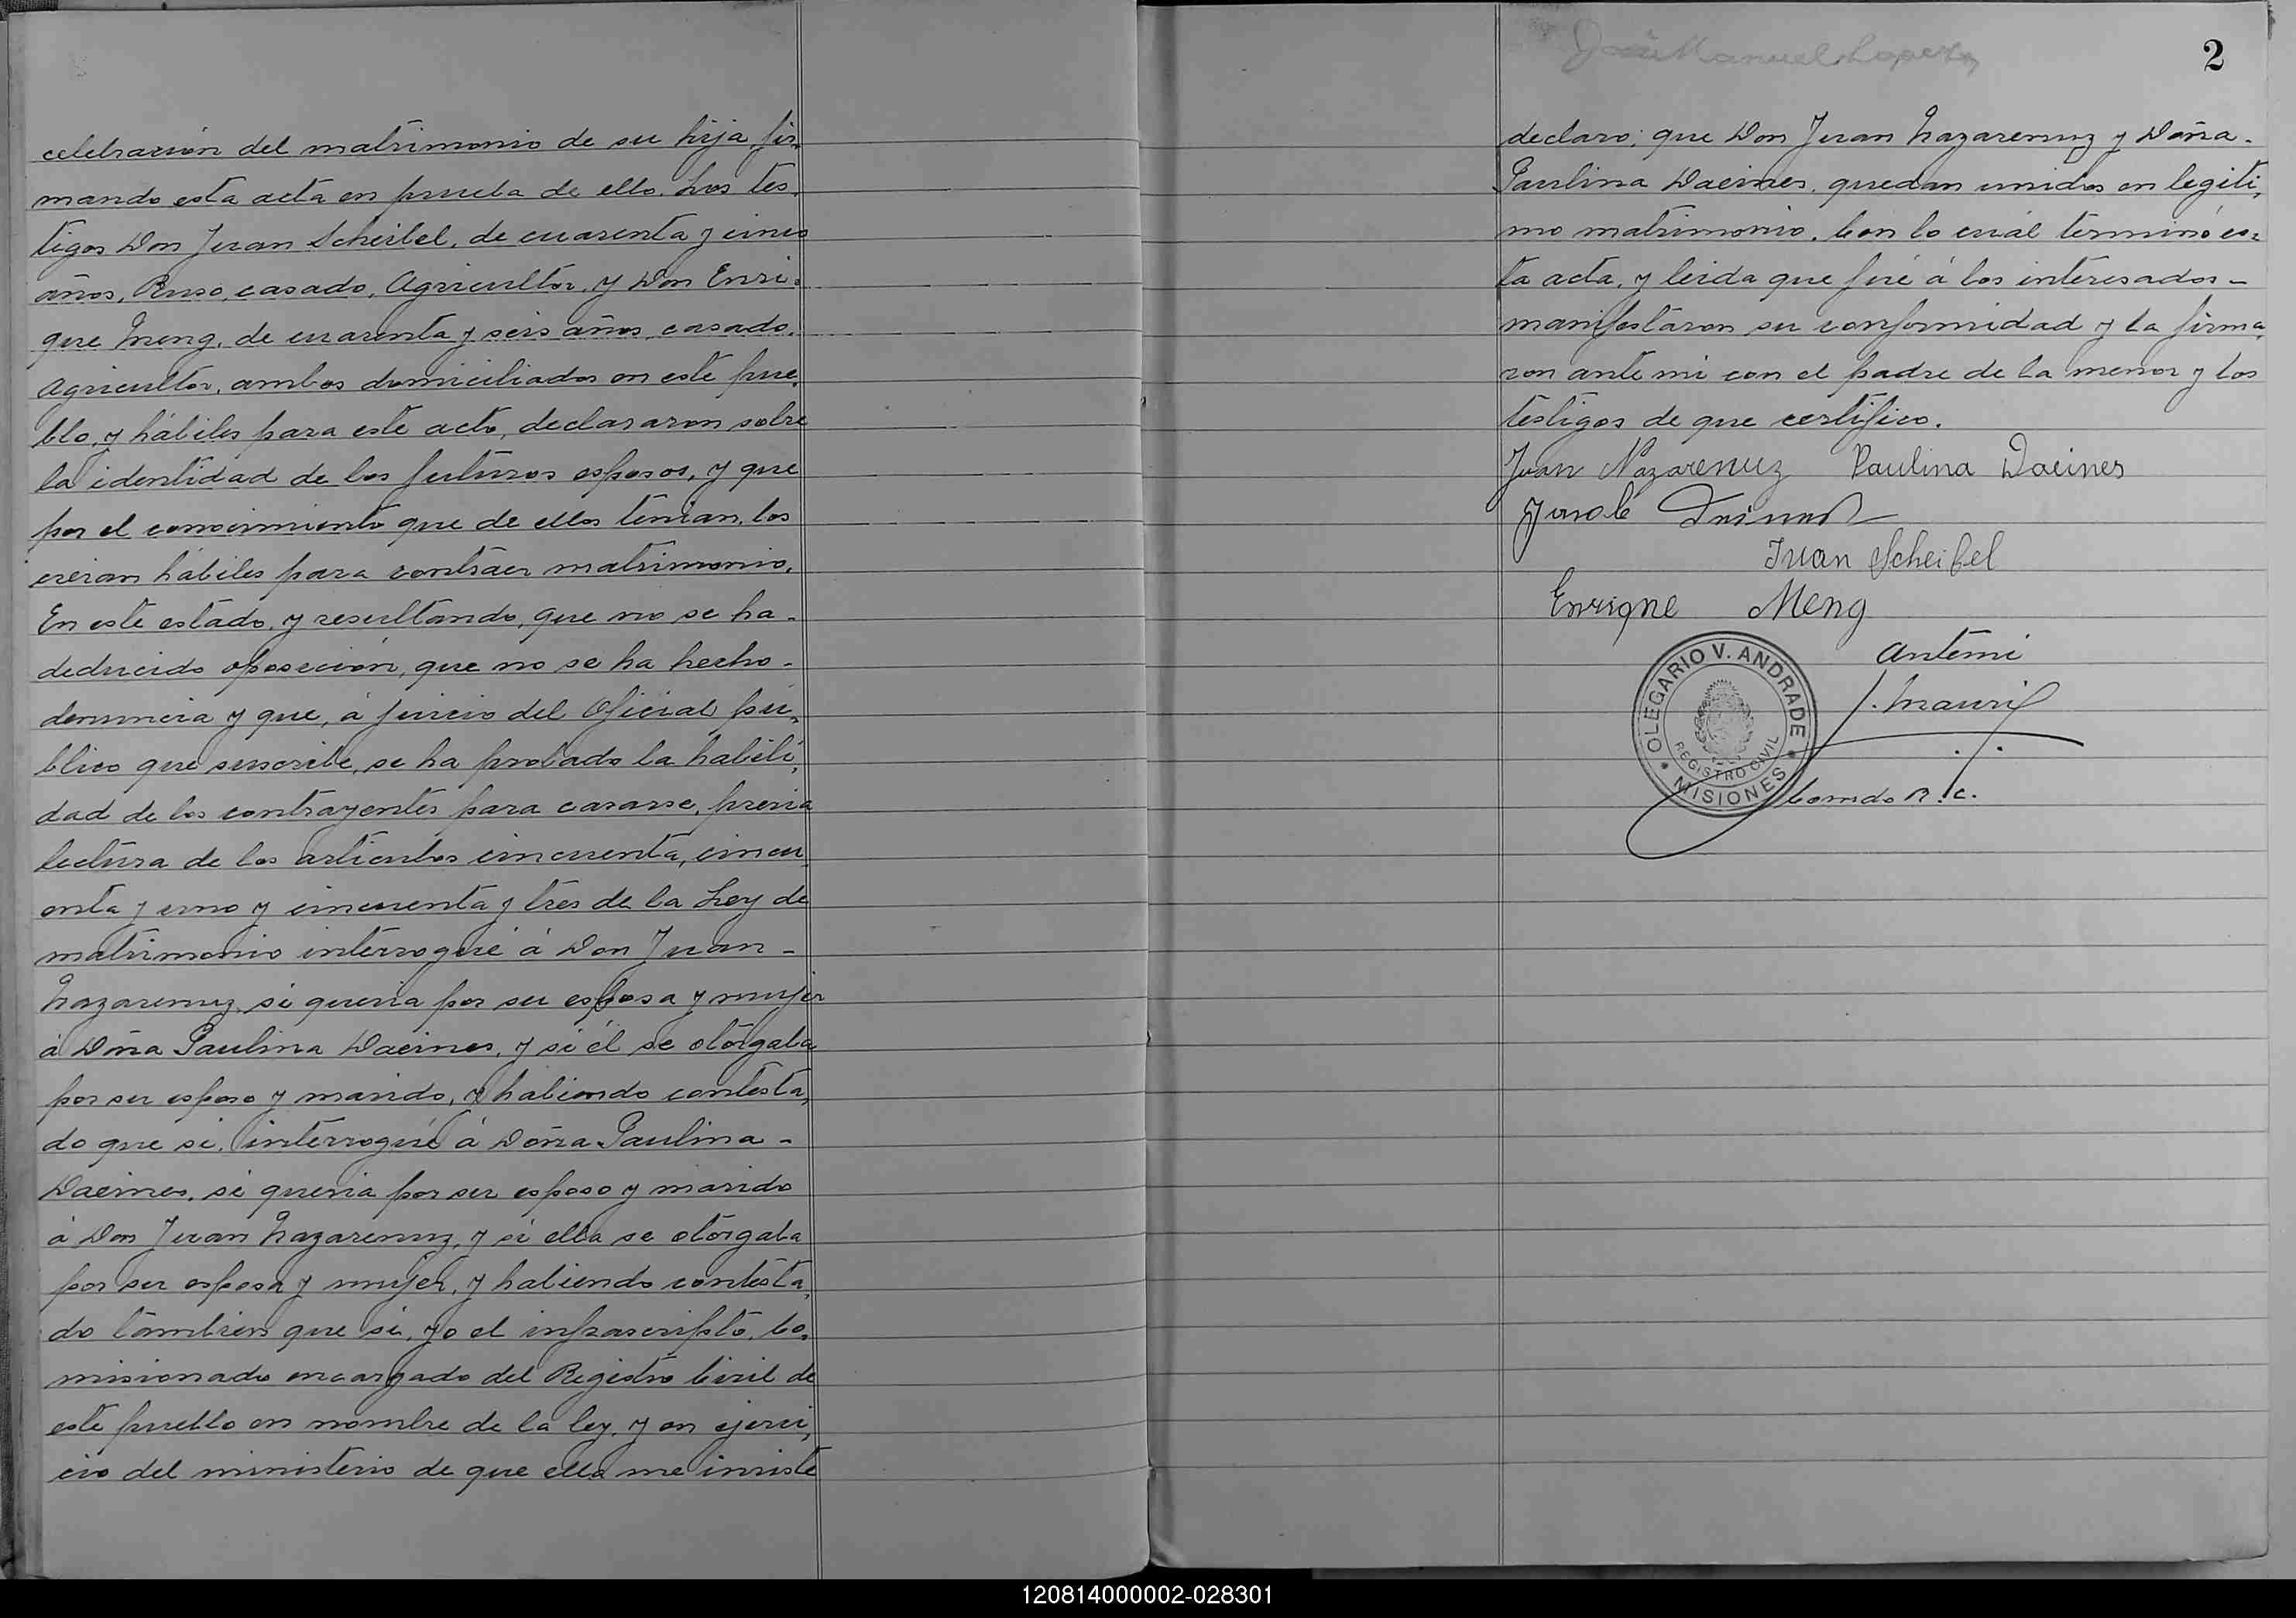 celebración del matrimonio de su hija, fir-
mando esta acta en prueba de ello. Los tes-
tigos Don Juan Scheibel, de cuarenta y cinco
años, Ruso, casado, Agricultor, y Don Enri-
que Meng, de cuarenta y seis años, casado,
Agricultor, ambos domiciliados en este pue-
blo, y hábiles para este acto, declararon sobre
la identidad de los futuros esposos, y que
por el conocimiento que de ellos tenian, los
creian hábiles para contráer matrimonio.
En este estado, y resultando, que no se ha-
deducido oposición, que no se ha hecho-
denuncia y que, á juicio del Oficial pú-
blico que suscribe, se ha probado la habili-
dad de los contrayentes para casarse, previa
lectura de los articulos cincuenta, cincu-
enta y uno y cincuenta y tres de la Ley de
matrimonio interrogué á Don Juan-
Nazarenuz, si queria por su esposa y mujer
á Doña Paulina Daeines, y si él se otorgaba
por su esposo y marido, y habiendo contesta-
do que si, interrogué á Doña Paulina-
Daeines, si queria por su esposo y marido
á Don Juan Nazarenuz, y si ella se otorgaba
por su esposa y mujer, y habiendo contesta-
do tambien que si, yo el infrascripto, Co-
misionado encargado del Registro Civil de
este pueblo en nombre de la ley, y en ejerci-
cio del ministerio de que ella me inviste
Manuel Lopez
2
declaro: que Don Juan Nazarenuz y Doña-
Paulina Daeines, quedan unidos en legiti-
mo matrimonio. Con lo cuál terminó es-
ta acta, y leida que fué á los interesados-
manifestaron su conformidad y la firma-
ron ante mi con el padre de la menor y los
testigos de que certifico.
Juan Nazarenuz Paulina Daeines
Juan Scheibel
Enrique Meng
Ante mi
OLEGARIO V. ANDRADE
REGISTRO CIVIL
MISIONES
J. Mauri
Comdo R. C.
120814000002-028301